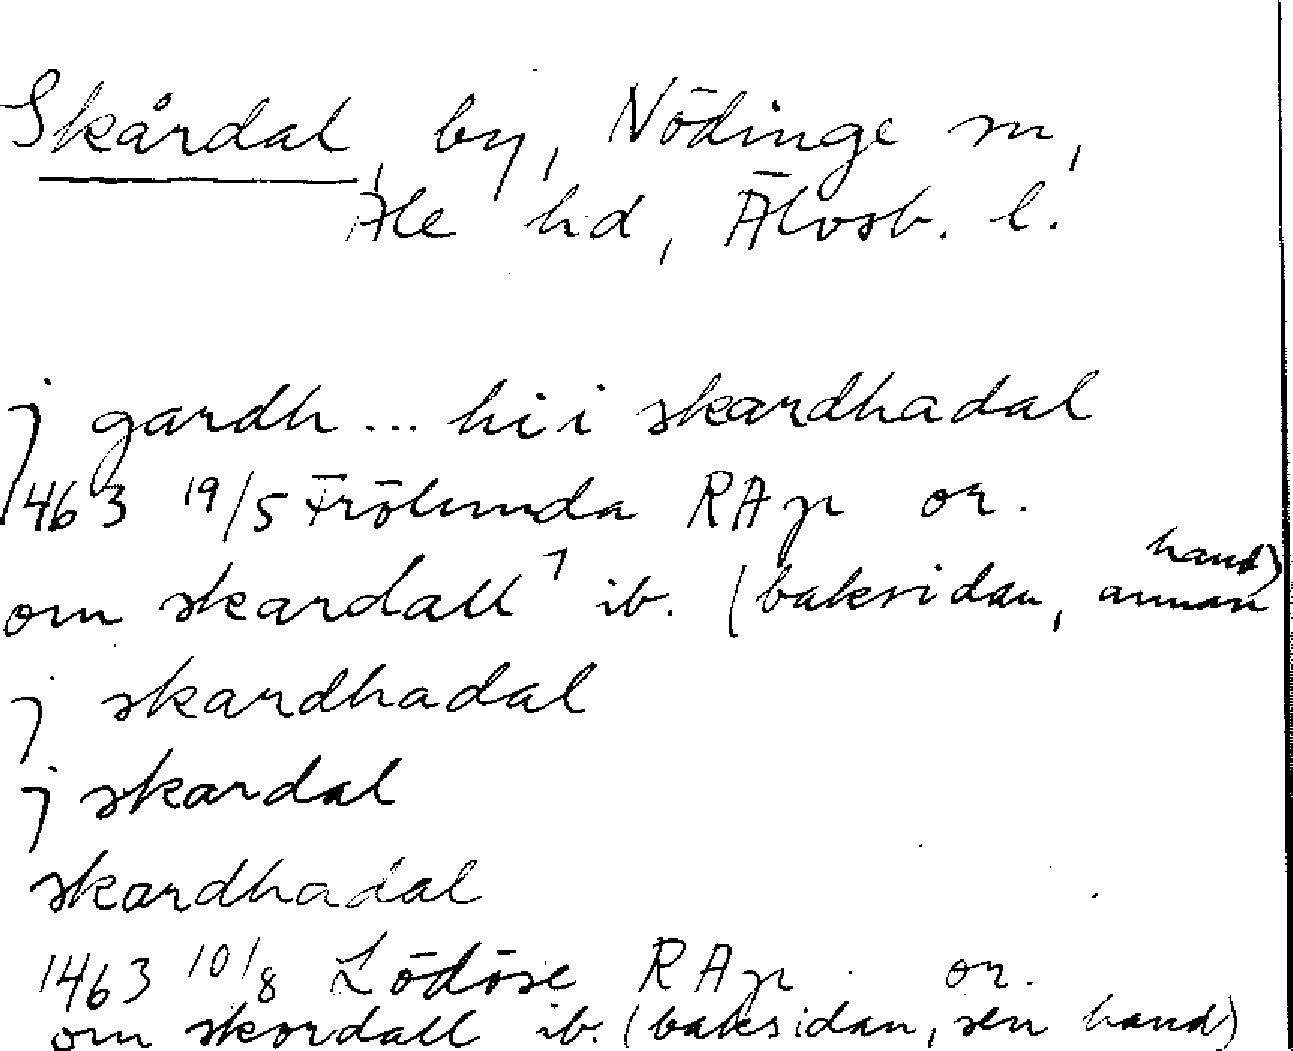 Skårdal, by, Nödinge sn,
Ale hd, Älvsb. l.
j gardh ... hi i skardhadal
1463 19/5 Frölunda RAp or.
om skardall ib. (baksidan, annan hand)
j skardhadal
j skardal
skardhadal
1463 10/8 Lödöse RAp or.
om skordall ib. (baksidan, sen hand)